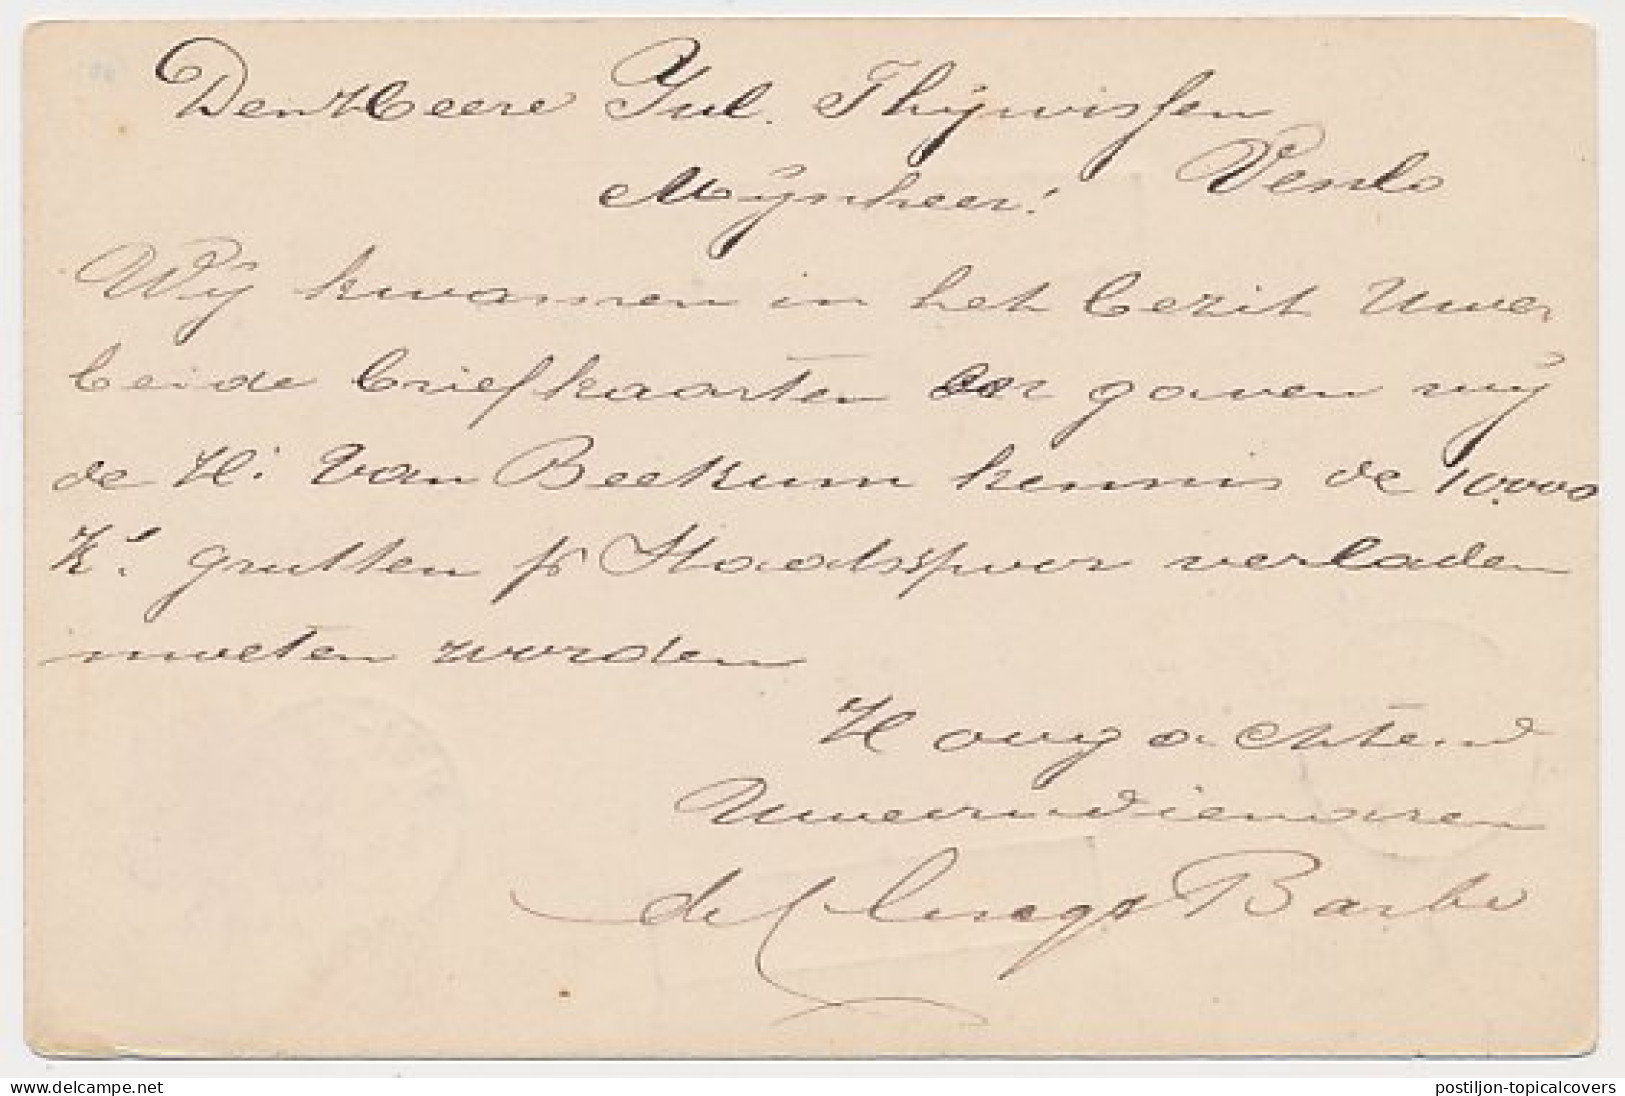 Den Heere Jul. Thijwissen
Venlo
Mijnheer!
Wij kwamen in het bezit Uwer
beide briefkaarten gaven wij
de H: Van Beekum kennis de 10.000
Ko. grutten ps Staadsspoor verladen
moeten worden
Hoogachtend
Uwe dienaren
de Barbe
delcampe.net
postiljon-topicalcovers